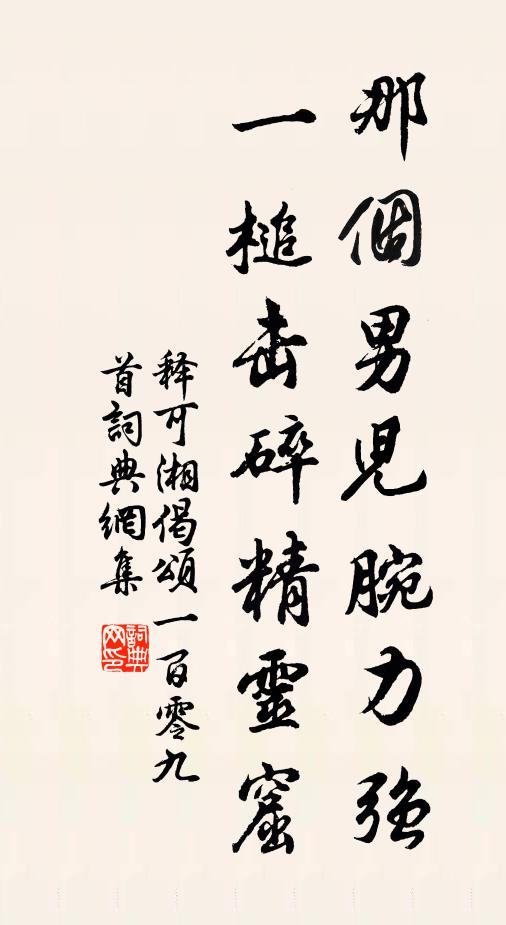 那個男児腕力强
一槌击碎精靈窟
释可湘偈頌一百零九
首詞典網集
詞典网印